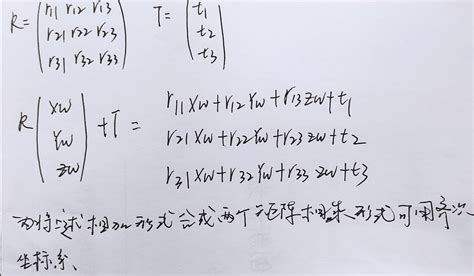 R = (r11 r12 r13 T = (t1
r21 r22 r23 t2
r31 r32 r33) t3)
R (xw yw zw) + T = r11 xw + r12 yw + r13 zw + t1
r21 xw + r22 yw + r23 zw + t2
r31 xw + r32 yw + r33 zw + t3
为将上述相加形式合成两个矩阵相乘形式可用齐次
坐标系、